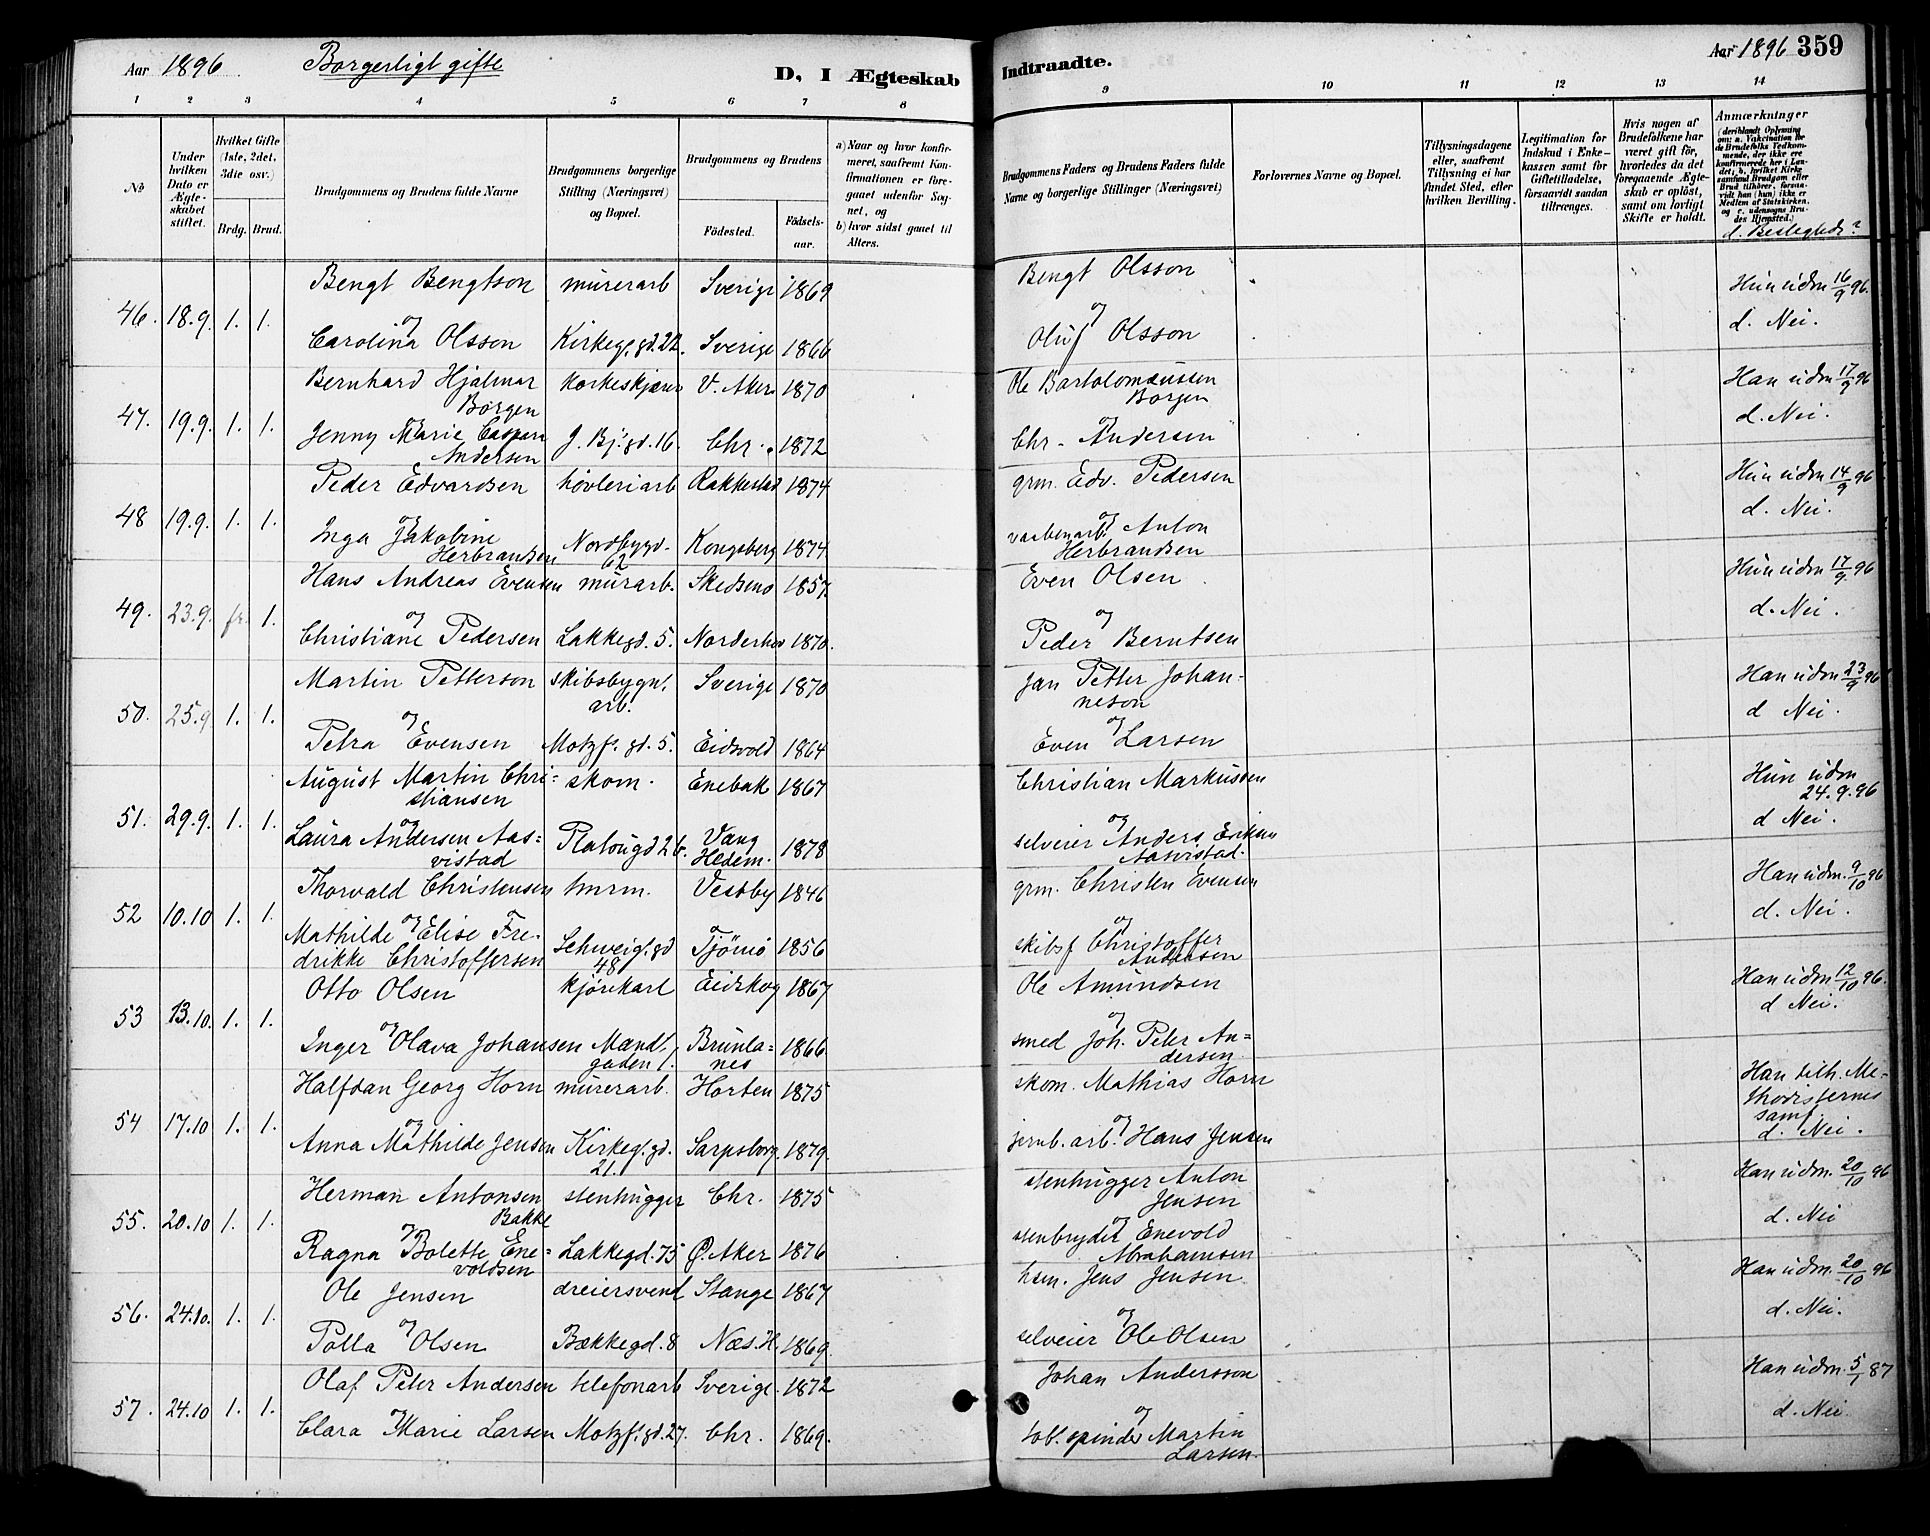 Aar 1896. Borgerligt gifte D, I Ægteskab
Indtraadte. Aar 1896 359
1 2 3 4 5 6 7 8
9 10 11 12 13 14
No
Under hvilken Dato er Ægteskabet stiftet.
Hvilket Gifte (1ste, 2det, 3die osv.)
Brdg. Brud.
Brudgommens og Brudens fulde Navne
Brudgommens borgerlige Stilling (Næringsvei) og Bopæl.
Brudgommens og Brudens
Födested. Födselsaar.
a) Naar og hvor konfirmeret, saafremt Konfirmationen er foregaaet udenfor Sognet, og
b) hvor sidst gaaet til Alters.
Brudgommens Faders og Brudens Faders fulde Navne og borgerlige Stillinger (Næringsvei)
Forlovernes Navne og Bopæl.
Tillysningsdagene eller, saafremt Tillysning ei har fundet Sted, efter hvilken Bevilling.
Legitimation for Indskud i Enkekassen samt for Giftetilladelse, forsaavidt saadan tiltrænges.
Hvis nogen af Brudefolkene har været gift før, hvorledes da det foregaaende Ægteskab er oplöst, samt om lovligt Skifte er holdt.
Anmærkninger
(deriblandt Oplysning om: a. Vaccination for de Brudefolks Vedkommende, der ikke ere konfirmerede her i Landet; b. hvilket Kirkesamfund Brudgom eller Brud tilhörer, forsaavidt han (hun) ikke er Medlem af Statskirken, og c. udensogns Brudes Hjemsted.)
d. Beslegtede?
46. 18.9. 1. 1. Bengt Bengtson murerarb Sverige 1869 Bengt Olsson Hun udm 16/9 96.
og Carolina Olsson Kirkeg. gd. 22. Sverige 1866 og Oluf Olsson d. Nei.
47. 19.9. 1. 1. Bernhard Hjalmar Borgen korkeskjærer V. Aker 1870 Ole Bartolomæussen Borgen Han udm 17/9 96
og Jenny Marie Caspara Andersen J. Bj. gd. 16. Chr. 1872 og Chr. Andersen d. Nei.
48 19.9. 1. 1. Peder Edvardsen høvleriarb Rakkestad 1874 grm. Edv. Pedersen Hun udm 14/9 96
og Inga Jakobine Herbrandsen Nordbygd. 62 Kongsberg 1874 og vaabenarb. Anton Herbrandsen d. Nei.
49. 23.9. fr. 1. Hans Andreas Evensen murarb. Skedsmo 1857. Even Olsen Hun udm 17/9 96
og Christiane Pedersen Lakkegd. 5. Norderhov 1870. og Peder Berntsen d. Nei.
50. 25.9 1. 1. Martin Petterson skibsbygn. arb. Sverige 1870 Jan Petter Johanneson Han udm 23/9 96
og Petra Evensen Motzf. gd. 5. Eidsvold 1864 og Even Larsen d Nei.
51. 29.9. 1. 1. August Martin Christiansen skom. Enebak 1867 Christian Markussen Hun udm 24.9.96
og Laura Andersen Aasvistad Platougd 26. Vang Hedem. 1878 og selveier Anders Eriksen Aasvistad. d Nei.
52 10.10 1. 1. Thorvald Christensen tmrm. Vestby 1846 grm. Christen Evensen Han udm. 9/10 96
og Mathilde Elise Fredrikke Christoffersen Schweig. gd 48 Tjömö 1856 og skibsf Christoffer Andersen d. Nei.
53 13.10. 1. 1. Otto Olsen kjørekarl Eidskog 1867 Ole Amundsen Han udm 12/10 96.
og Inger Olava Johansen Mandl. gaden 1. Brunlanes 1866. og smed Joh. Peter Andersen d Nei.
54 17.10 1. 1. Halfdan Georg Horn murerarb. Horten 1875 skom. Mathias Horn Han tilh. Methodisternes samf.
og Anna Mathilde Jensen Kirkeg. gd. 21. Sarpsborg. 1879. og jernb. arb. Hans Jensen d. Nei.
55. 20.10 1. 1. Herman Antonsen Bakke stenhugger Chr. 1875 stenhugger Anton Jensen Han udm. 20/10 96
og Ragna Bolette Enevoldsen Lakkegd. 75 Ø. Aker 1876 og stenbryder Enevold Abrahamsen d. Nei
56. 24.10. 1. 1. Ole Jensen dreiersvend Stange 1867 hsm. Jens Jensen Han udm. 20/10 96
og Polla Olsen Bækkegd. 8 Næs. H. 1869. og selveier Ole Olsen d. Nei.
57. 24.10 1. 1. Olaf Peter Andersen telefonarb Sverige. 1872 Johan Andersson Han udm. 5/1 87
og Clara Marie Larsen Motzf. gd. 27. Chr. 1869. og tob. spinder Martin Larsen. d. Nei.